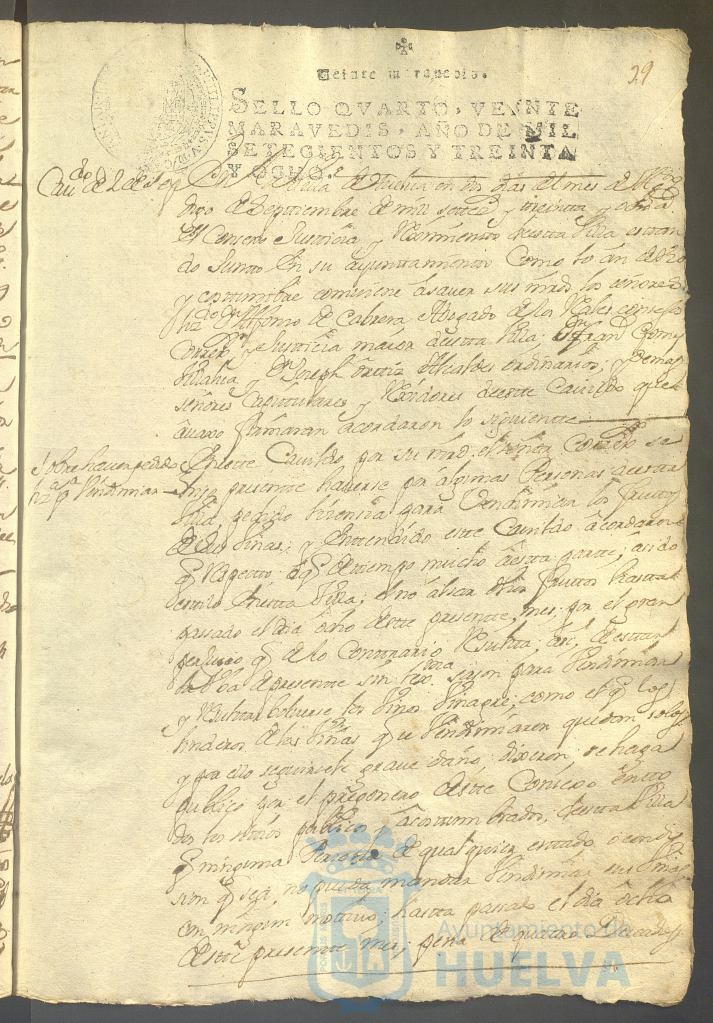 29
Veinte maravedis.
SELLO QVARTO, VEINTE
MARAVEDIS, AÑO DE MIL
SETECIENTOS Y TREINTA
Y OCHO.
PHILIPPUS V D G
Caudo de 2 de Sep
En la Villa de Huelva en dos dias del mes de
digo de Septiembre de mil settecs y treinta y ocho as
el Consejo Justicia y Reximiento desta Villa estan
do Junto en su ayuntamiento como lo an de uso
y costumbre combiene a sauer sus mrds los señores
Lizdo Dn Alfonso de Cabrera Abogado de los Rales consejos
Correxor y Justicia maior desta Villa; Dn Franco
y Dn Joseph Ortiz Alcaldes ordinarios; y demas
señores Capitulares y Rexidores deeste Cauildo que
auaxo firmaran acordaron lo siguiente
Sobre hauer pedido
liza pa Vendimiar
En este Cauildo por su mrd el señor Correxor se
hizo presente hauerse por algunas Personas desta
Villa, pedido lizensia para Vendimiar los frutos
de sus Viñas; y Entendido este Cauildo acordaron
q Respetto a q de tiempo mucho a esta parte, a sido
estilo en esta Villa; el no alsar dhos fruttos hasta
passado el dia ocho deste presente mes; por el gran
perjuiço q de lo Contrario Resulta, asi, de estar
la Vba de presente sin la sason para Vendimiar
y Resultar boluerse los Vinos Vinagre; como el q los
linderos de las Viñas que se Vendimiaren quedan solos
y por ello seguirsele graue daño; dixeron, se haga
publico por el pregonero deste Consexo en
los sitios publicos y acostumbrados, desta Villa
q ninguna Persona de qualquier estado o condi
sion q sea, no pueda mandar Vendimiar sus Viñas
con ningun motivo; hasta passado el dia ocho
deste presente mes; pena de quattro Ducados
Ayuntamiento de
HUELVA